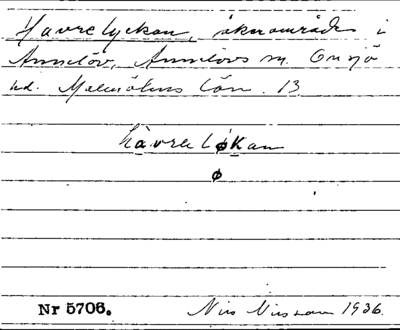 Havrelyckan, åkerområde i
Annelöv, Annelövs sn. Onsjö
hd. Malmöhus län. 13
hàvrelǿkan
ǿ
Nr 5706.
Nils Nilsson 1936.